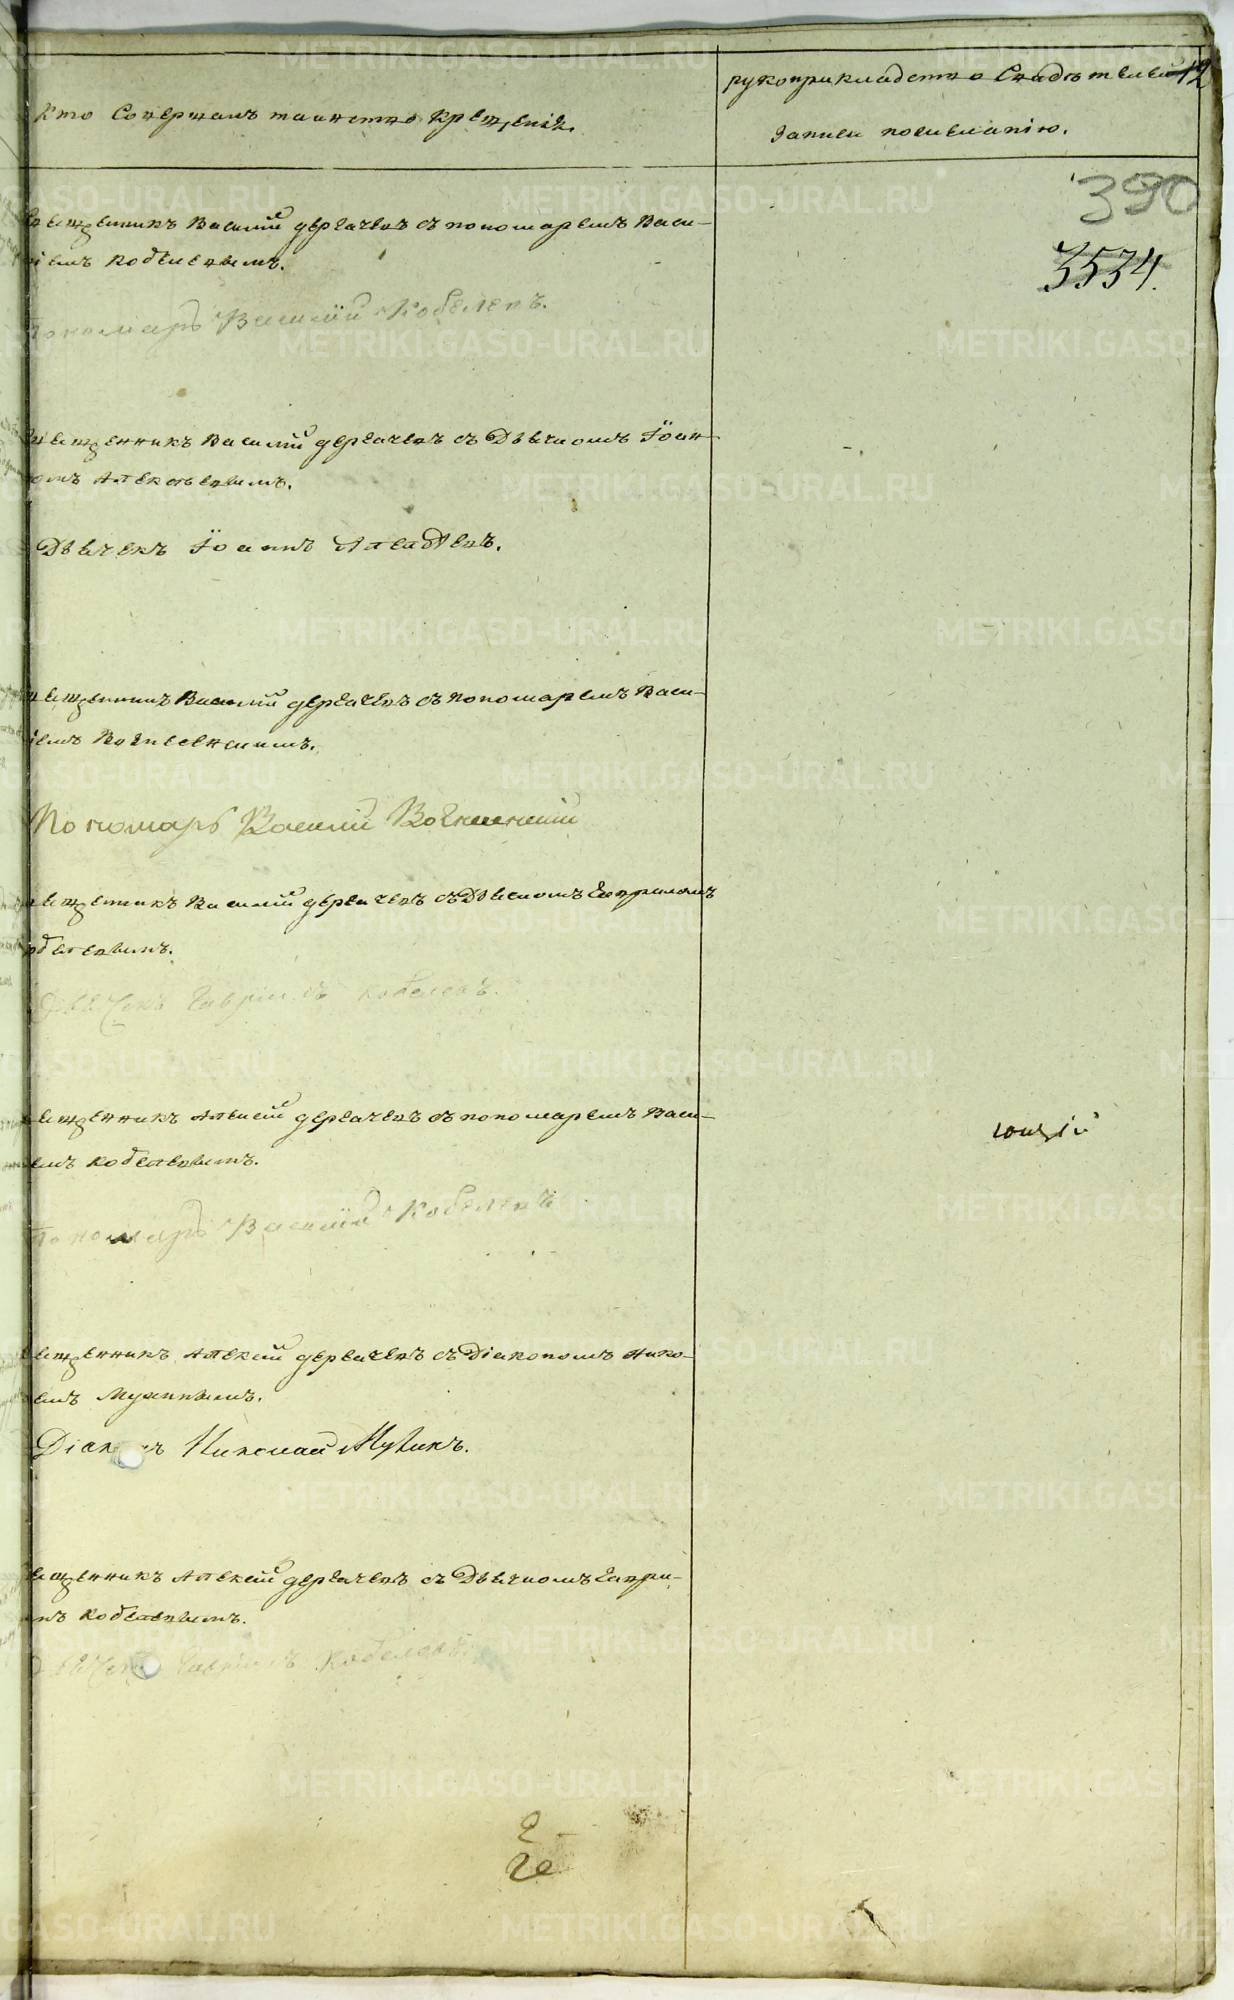 Кто Совершалъ таинство крещенія.
рукоприкладство Свидѣтелей
записи по желанію.
12
390
3534.
священникъ Василій дергачевъ съ пономаремъ Васи-
ліемъ кобелевымъ.
Пономарь Василій Кобелевъ.
священникъ Василій дергачевъ съ Дьячкомъ Іоан-
номъ
Дьячекъ Іоаннъ
священникъ Василій дергачевъ съ пономаремъ Васи-
ліемъ Вознесенскимъ.
Пономарь Василій Вознесенскій
священникъ Василій дергачевъ съ Дьячкомъ Гавриломъ
кобелевымъ.
Дьячекъ Гавріилъ кобелевъ.
священникъ Алексей дергачевъ съ пономаремъ Васи-
емъ кобелевымъ.
Пономарь Василій Кобелевъ
священникъ Алексей дергачевъ съ Діакономъ нико-
емъ Мухинымъ.
Николай Мухинъ.
священникъ Алексей дергачевъ съ Дьячкомъ Гаври-
лъ кобелевымъ.
Дьячекъ Гавріилъ кобелевъ.
METRIKI.GASO-URAL.RU